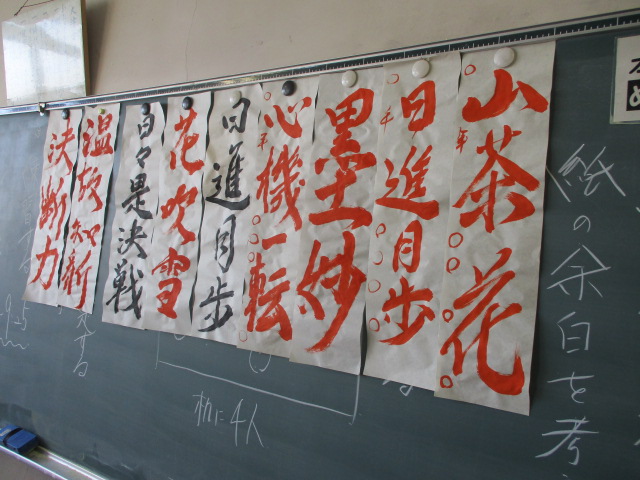 紙の余白を考
山茶花
日進月歩
墨妙
心機一転
日進月歩
花吹雪
日々是決戦
温故知新
決断力
机に4人
9.25